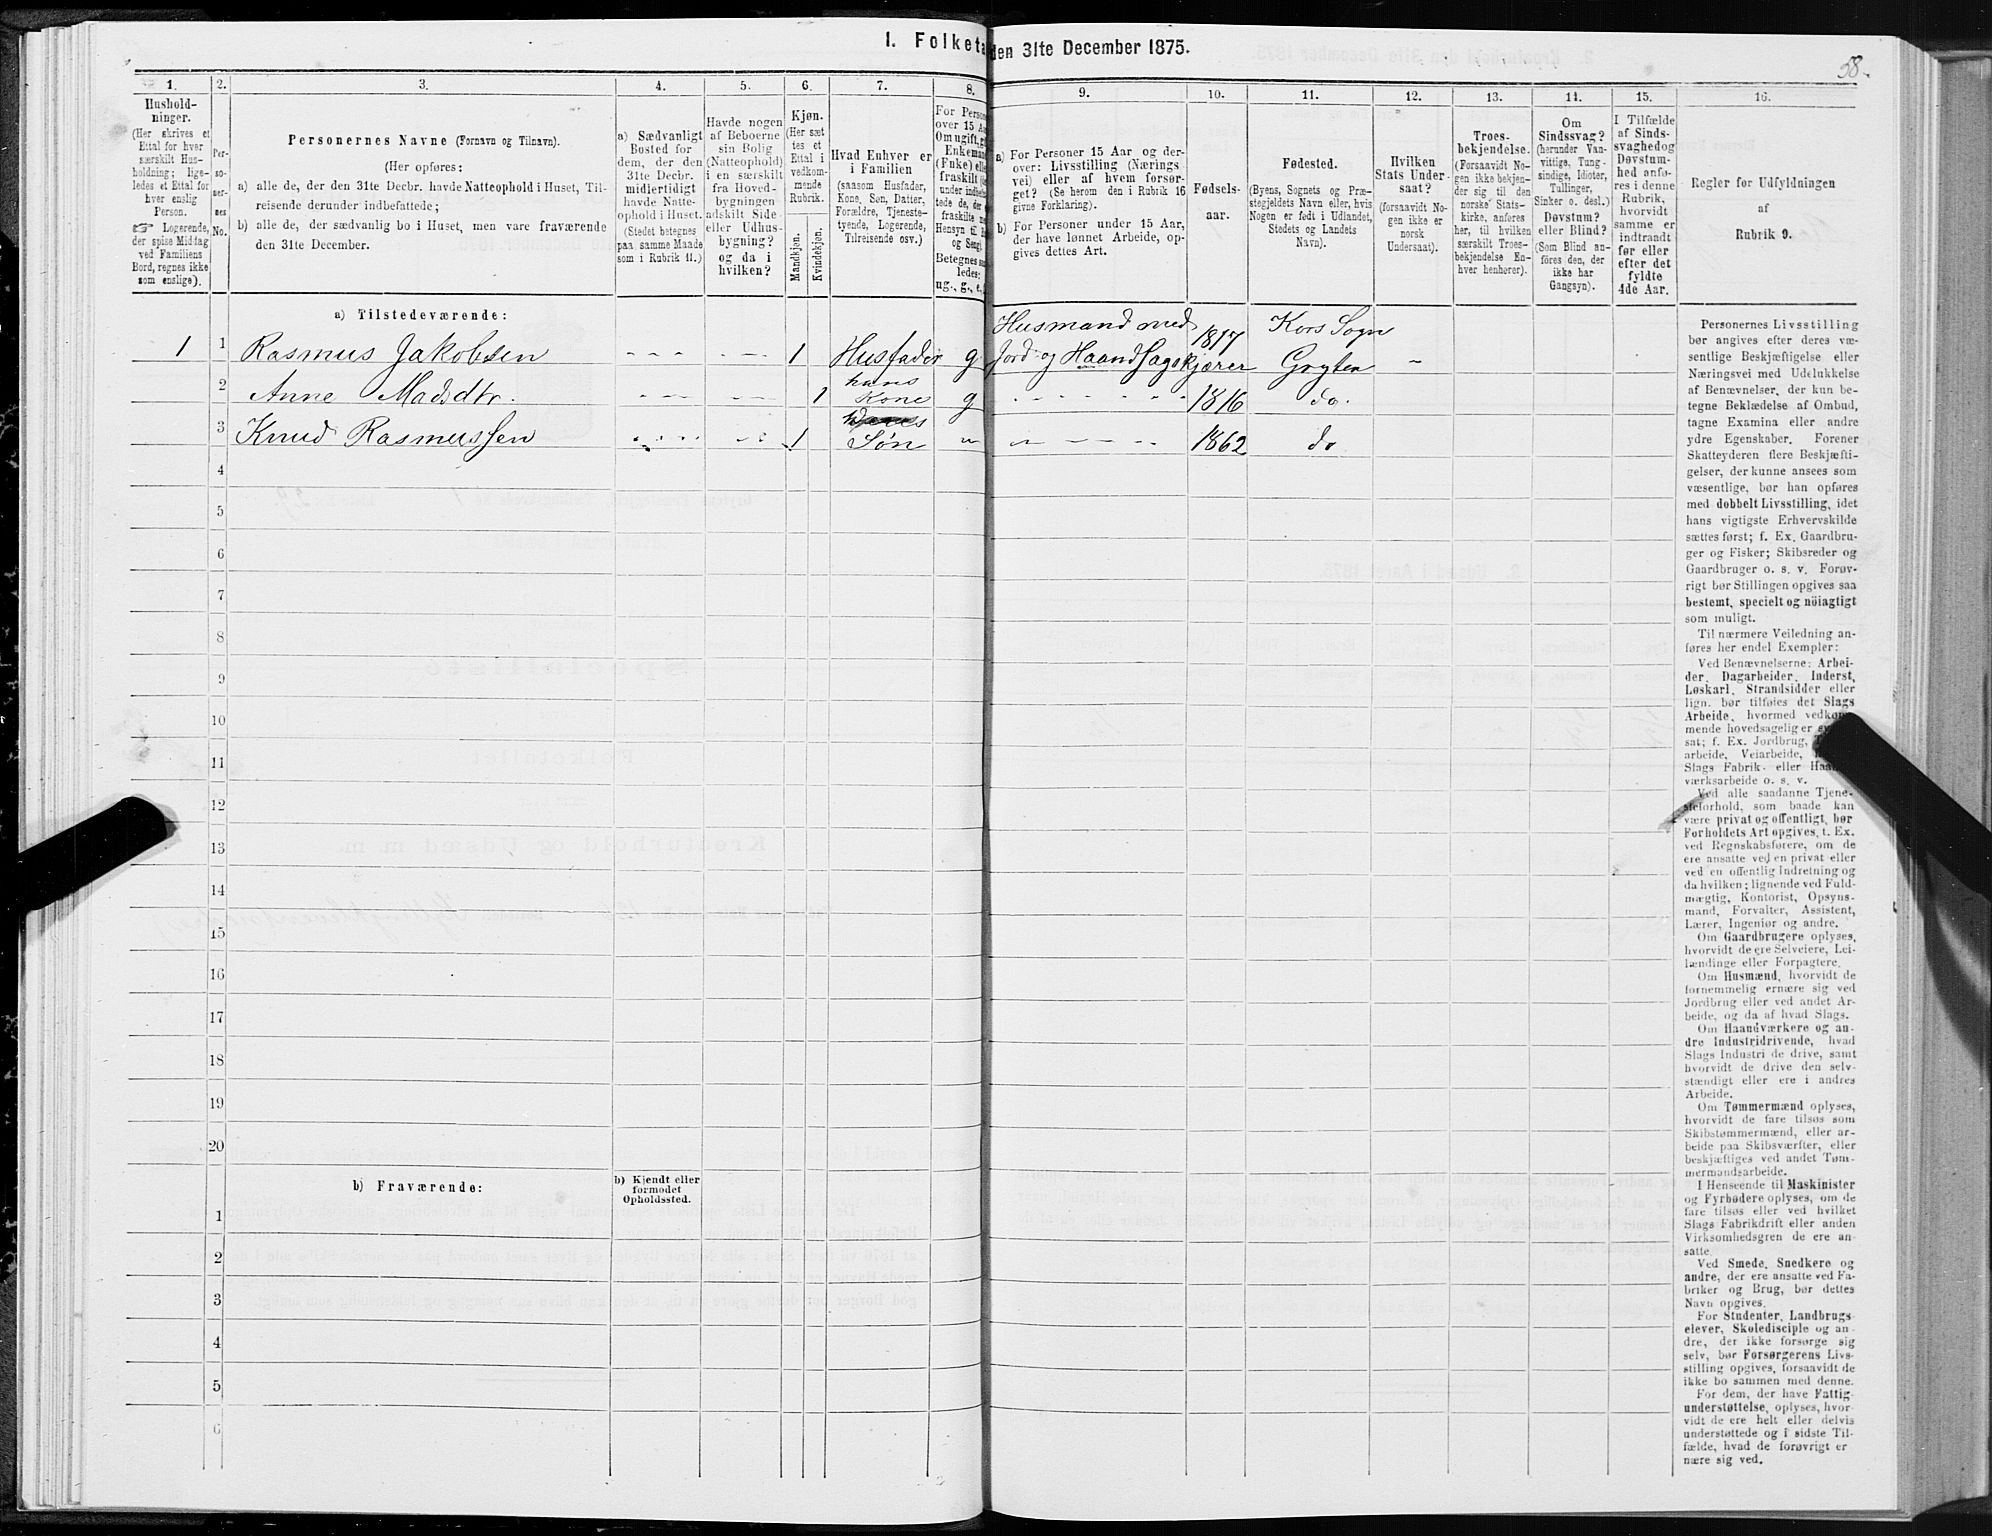 1. Folketal den 31te December 1875.
58.
1. 2. 3. 4. 5. 6. 7. 8. 9. 10. 11. 12. 13. 14. 15. 16.
Hushold-
ninger.
(Her skrives et
Ettal for hver
særskilt Hus-
holdning; lige-
ledes et Ettal for
hver enslig
Person.
☞ Logerende,
der spise Middag
ved Familiens
Bord, regnes ikke
som enslige).
Per-
so-
ner-
nes
No.
Personernes Navne (Fornavn og Tilnavn).
(Her opføres:
a) alle de, der den 31te Decbr. havde Natteophold i Huset, Til-
reisende derunder indbefattede;
b) alle de, der sædvanlig bo i Huset, men vare fraværende
den 31te December.
a) Sædvanligt
Bosted for
dem, der den
31te Decbr.
midlertidigt
havde Natte-
ophold i Huset.
(Stedet betegnes
paa samme Maade
som i Rubrik 11.)
Havde nogen
af Beboerne
sin Bolig
(Natteophold)
i en særskilt
fra Hoved-
bygningen
adskilt Side-
eller Udhus-
bygning?
og da i
hvilken?
Kjøn.
(Her sæt
tes et
Ettal i
vedkom-
mende
Rubrik.
Mandkjøn.
Kvindekjøn.
Hvad Enhver er
i Familien
(saasom Husfader,
Kone, Søn, Datter,
Forældre, Tjeneste-
tyende, Logerende,
Tilreisende osv.)
For Perso
over 15 Aa
Om ugift, g
Enkeman
(Enke) elle
fraskilt (
under indbe
tede de, der
fraskilte m
Hensyn til B
og Seng).
Betegnes saa
ledes:
ug., g., e., f.
a) For Personer 15 Aar og der-
over: Livsstilling (Nærings-
vei) eller af hvem forsør-
get? (Se herom den i Rubrik 16
givne Forklaring).
b) For Personer under 15 Aar,
der have lønnet Arbeide, op-
gives dettes Art.
Fødsels-
aar.
Fødested.
(Byens, Sognets og Præ-
stegjeldets Navn eller, hvis
Nogen er født i Udlandet,
Stedets og Landets
Navn).
Hvilken
Stats Under-
saat?
(forsaavidt No-
gen ikke er
norsk
Undersaat).
Troes-
bekjendelse.
(Forsaavidt No-
gen ikke bekjen-
der sig til den
norske Stats-
kirke, anføres
her, til hvilken
særskilt Troes-
bekjendelse En-
hver henhører).
Om
Sindssvag?
(herunder Van-
vittige, Tung-
sindige, Idioter,
Tullinger,
Sinker o. desl.)
Døvstum?
eller Blind?
(Som Blind an-
føres den, der
ikke har
Gangsyn).
I Tilfælde
af Sinds-
svaghedog
Døvstum-
hed anfø-
res i denne
Rubrik,
hvorvidt
samme er
indtraadt
før eller
efter det
fyldte
4de Aar.
Regler før Udfyldningen
af
Rubrik 9.
a) Tilstedeværende:
Husmand med Kors Sogn
1 1 Rasmus Jakobsen 1 Husfader g Jord og 1817 Gryten
hans
2 Anne Madsdtr. 1 Kone g 1816 do.
3 Knud Rasmussen 1 Søn 1862 do
4
5
6
7
8
9
10
11
12
13
14
15
16
17
18
19
20
b) Fraværende:
b) Kjendt eller
formodet
Opholdssted.
1
2
3
4
5
6
Personernes Livsstilling
bør angives efter deres væ-
sentlige Beskjæftigelse eller
Næringsvei med Udelukkelse
af Benævnelser, der kun be-
tegne Beklædelse af Ombud,
tagne Examina eller andre
ydre Egenskaber. Forener
Skatteyderen flere Beskjæfti-
gelser, der kunne ansees som
væsentlige, bør han opføres
med dobbelt Livsstilling, idet
hans vigtigste Erhvervskilde
sættes først; f. Ex. Gaardbru-
ger og Fisker; Skibsreder og
Gaardbruger o. s. v. Forøv-
rigt bør Stillingen opgives saa
bestemt, specielt og nöiagtigt
som muligt.
Til nærmere Veiledning an-
føres her endel Exempler:
Ved Benævnelserne: Arbei-
der, Dagarbeider, Inderst,
Løskarl, Strandsidder eller
lign. bør tilføies det Slags
Arbeide, hvormed vedkom-
mende hovedsagelig er
sat; f. Ex. Jordbrug,
arbeide, Veiarbeide,
Slags Fabrik- eller
værksarbeide o. s. v.
Ved alle saadanne Tjene-
steforhold, som baade kan
være privat og offentligt, bør
Forholdets Art opgives, t. Ex.
ved Regnskabsførere, om de
ere ansatte ved en privat eller
ved en offentlig Indretning og
da hvilken; lignende ved Fuld-
mægtig, Kontorist, Opsyns-
mand, Forvalter, Assistent,
Lærer, Ingeniør og andre.
Om Gaardbrugere oplyses,
hvorvidt de ere Selveiere, Lei-
lændinge eller Forpagtere.
Om Husmænd, hvorvidt de
fornemmelig ernære sig ved
Jordbrug eller ved andet Ar-
beide, og da af hvad Slags.
Om Haandværkere og an-
dre Industridrivende, hvad
Slags Industri de drive, samt
hvorvidt de drive den selv-
stændigt eller ere i andres
Arbeide.
Om Tømmermænd oplyses,
hvorvidt de fare tilsøs som
Skibstømmermænd, eller ar-
beide paa Skibsværfter, eller
beskjæftiges ved andet Tøm-
mermandsarbeide.
I Henseende til Maskinister
og Fyrbødere oplyses, om de
fare tilsøs eller ved hvilket
Slags Fabrikdrift eller anden
Virksomhedsgren de ere an-
satte.
Ved Smede, Snedkere og
andre, der ere ansatte ved Fa-
briker og Brug, bør dettes
Navn opgives.
For Studenter, Landbrugs-
elever, Skoledisciple og an-
dre, der ikke forsørge sig
selv, bør Forsørgerens Livs-
stilling opgives, forsaavidt de
ikke bo sammen med denne.
For dem, der have Fattig-
understøttelse, oplyses, hvor-
vidt de ere helt eller delvis
understøttede og i sidste Til-
fælde, hvad de forøvrigt er
nære sig ved.